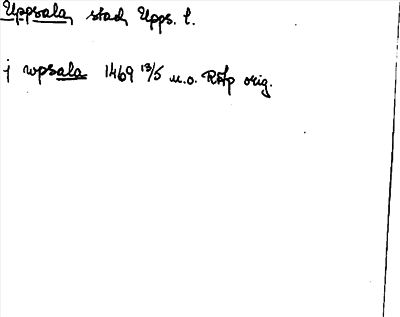 Uppsala, stad, Upps. l.
j wpsala 1469 13/5 u.o. RAp orig.